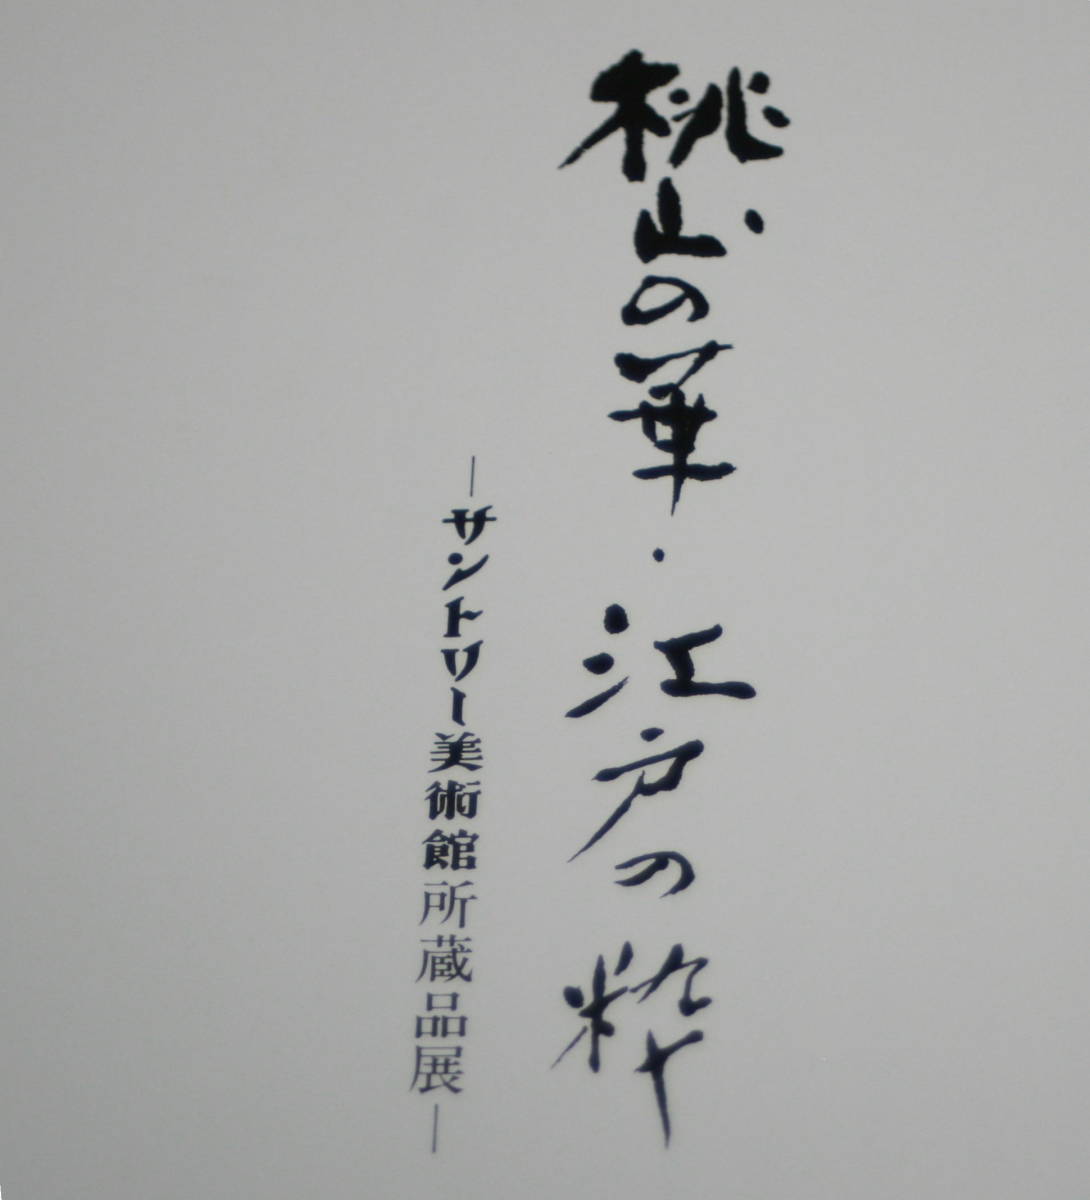 桃山の華・江戸の粋
―サントリー美術館所蔵品展―